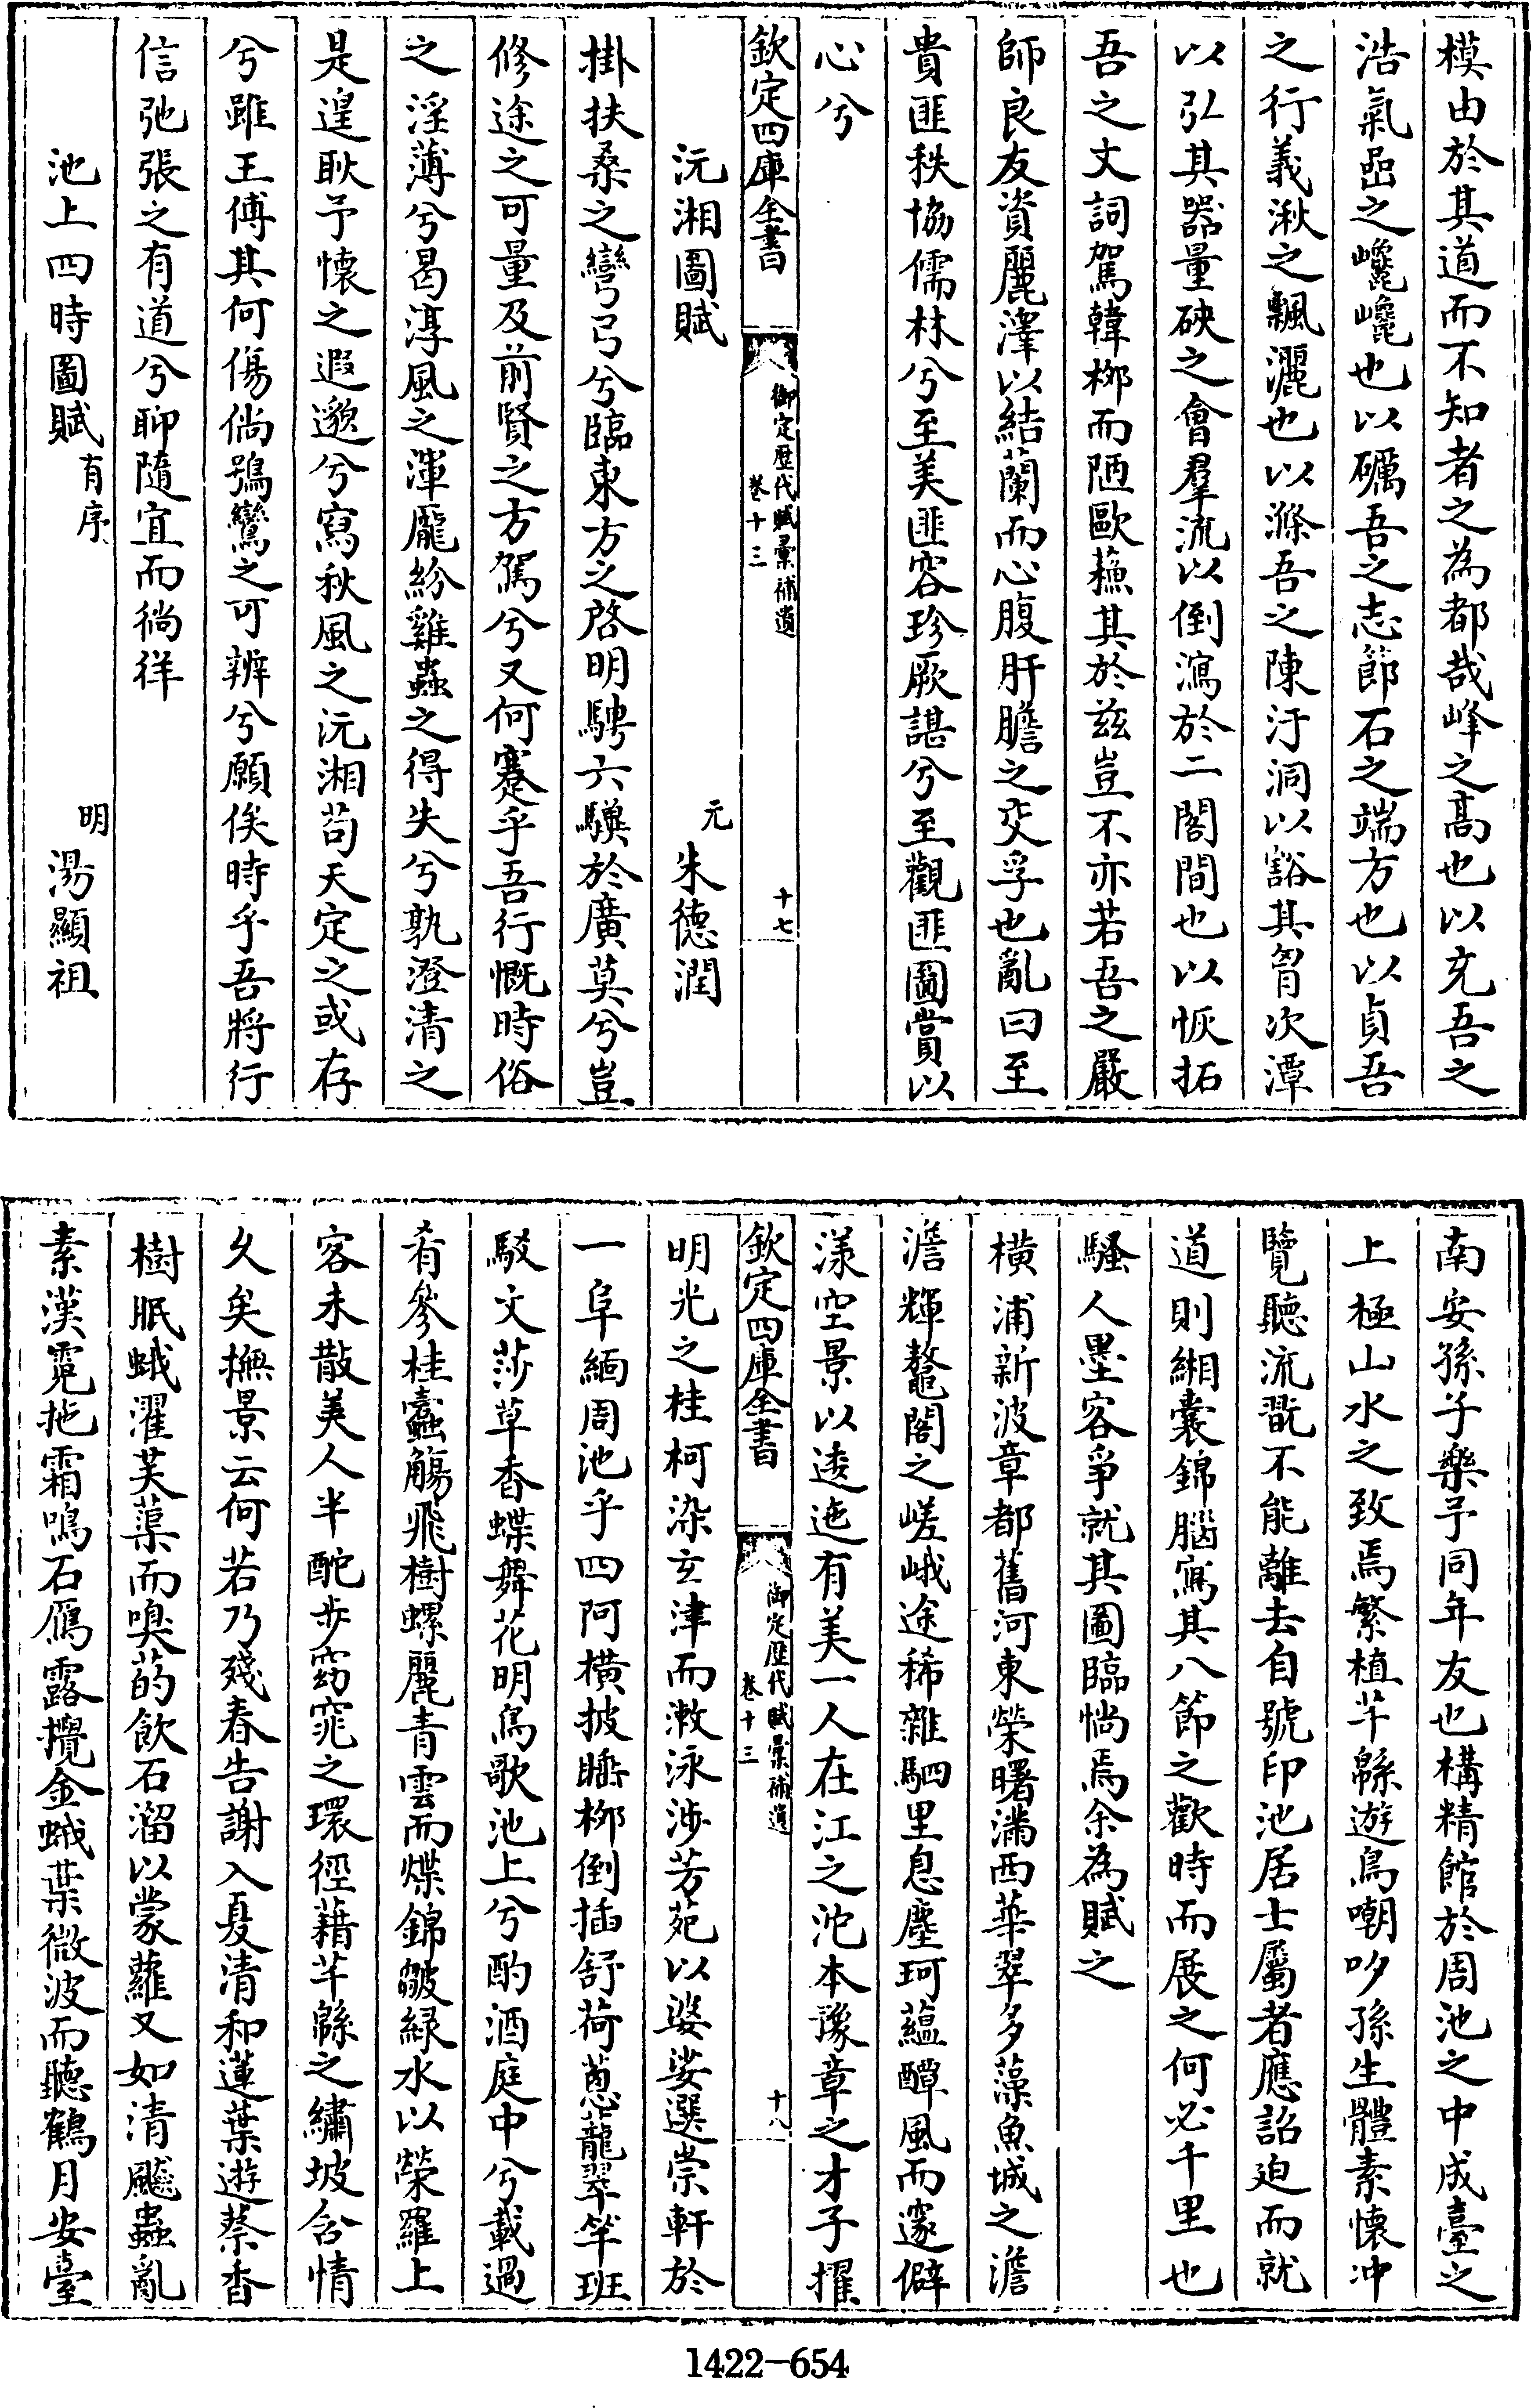 模由於其道而不知者之為都哉峰之髙也以充吾之
浩氣嵒之巉巉也以礪吾之志節石之端方也以貞吾
之行義湫之飄灑也以滌吾之陳汙洞以豁其胷次潭
以弘其器量硤之會羣流以倒瀉於二閣間也以恢拓
吾之文詞駕韓栁而陋歐蘓其於兹豈不亦若吾之嚴
師良友資麗澤以結蘭而心腹肝膽之交孚也亂曰至
貴匪秩協儒林兮至美匪容珍厥諶兮至觀匪圖賞以
心兮
欽定四庫全書
御定歴代賦彙補遺
卷十三
十七
沅湘圖賦
元 朱德潤
掛扶桑之彎弓兮臨東方之啓明騁六驥於廣莫兮豈
修途之可量及前賢之方駕兮又何蹇乎吾行慨時俗
之淫薄兮曷淳風之渾厖紛雞蟲之得失兮孰澄清之
是遑耿予懷之遐邈兮寫秋風之沅湘茍天定之或存
兮雖王傅其何傷倘鴞鸞之可辨兮願俟時乎吾將行
信弛張之有道兮聊隨宜而徜徉
池上四時圖賦有序
明 湯顯祖
南安孫子樂予同年友也構精館於周池之中成臺之
上極山水之致焉繁植芊緜遊鳥嘲哳孫生體素懷冲
覽聽流翫不能離去自號印池居士屬者應詔廹而就
道則緗囊錦腦寫其八節之歡時而展之何必千里也
騷人墨客爭就其圖臨惝焉余為賦之
横浦新波章都舊河東榮曙滿西華翠多藻魚城之澹
澹輝鼇閣之嵯峨途稀雜駟里息塵珂藴醰風而邃僻
漾空景以逶迤有美一人在江之沱本豫章之才子擢
欽定四庫全書
御定歴代賦彙補遺
卷十三
十八
明光之桂柯染玄津而潄泳渉芳苑以婆娑選崇軒於
一阜緬周池乎四阿横披睡栁倒插舒荷蔥蘢翠竿班
駁文莎草香蝶舞花明鳥歌池上兮酌酒庭中兮載過
肴參桂蠧觴飛樹螺麗青雲而煠錦皺緑水以縈羅上
客未散美人半酡步窈窕之環徑藉芊緜之繡坡含情
乆矣撫景云何若乃殘春告謝入夏清和蓮葉遊蔡香
樹眠蛾濯芙蕖而嗅菂飲石溜以蒙蘿又如清飈蟲亂
素漢霓拖霜鳴石鴈露攪金蛾葉微波而聽鶴月安臺
1422-654